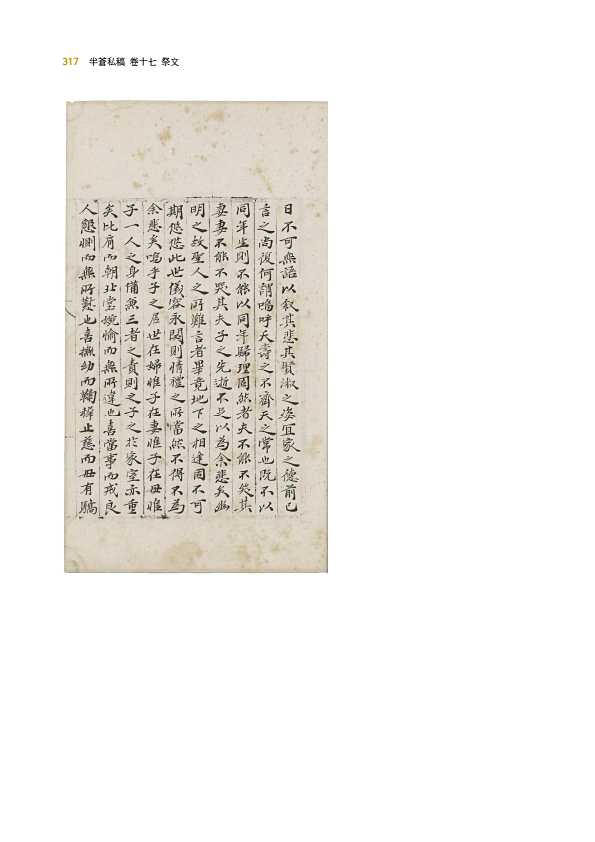 317 半蒼私稿 卷十七 祭文
日不可無語以叙其悲其賢淑之姿宜家之德前已
言之尚復何謂嗚呼夭壽之不齊天之常也旣不以
同年生則不能以同年歸理固然者夫不能不哭其
妻妻不能不哭其夫子之先逝不足以為余悲矣幽
明之故聖人之所難言者畢竟地下之相逢固不可
期悠悠此世儀容永閟則情禮之所當然不得不為
余悲矣嗚乎子之居世在婦惟子在妻惟子在母惟
子一人之身備兼三者之責則之子之於家室亦重
矣比肩而朝北堂婉愉而無所違也喜當事而戒良
人懇惻而無所懟也喜撫幼而鞠稺止慈而毋有驕